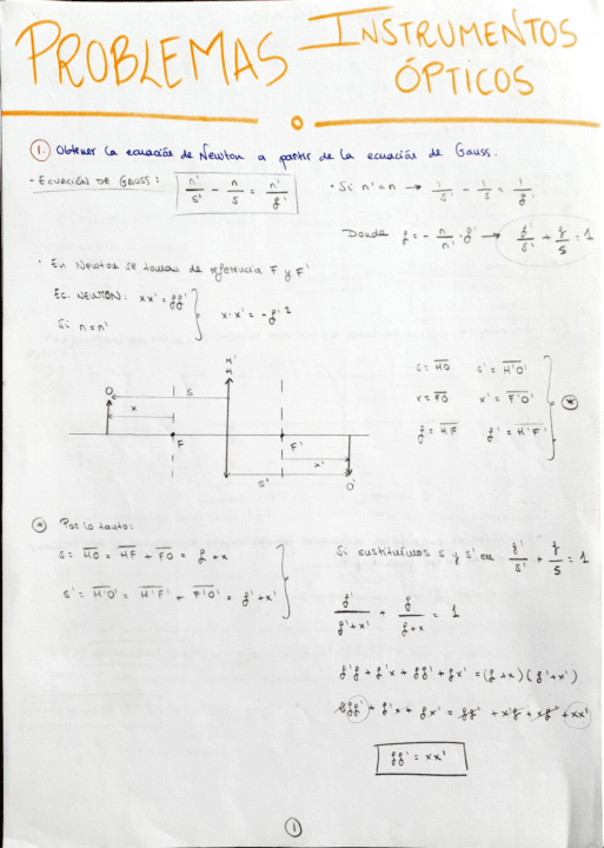 PROBLEMAS INSTRUMENTOS
ÓPTICOS
1. Obtener la ecuación de Newton a partir de la ecuación de Gauss.
· ECUACIÓN DE GAUSS: n'/s' - n/s = n'/f'
· Si n' = n → 1/s' - 1/s = 1/f'
Donde f = - n/n' · f' → f'/s' + f/s = 1
· En Newton se toman de referencia F y F'
Ec. NEWTON: xx' = ff'
Si n = n'
x·x' = -f'²
H'
H
O
S
x
F
F'
x'
s'
O'
s = HO s' = H'O'
x = FO x' = F'O'
f = HF f' = H'F'
*
* Por lo tanto:
s = HO = HF + FO = f + x
s' = H'O' = H'F' + F'O' = f' + x'
Si sustituímos s y s' en f'/s' + f/s = 1
f'/f'+x' + f/f+x = 1
f'f + f'x + ff' + fx' = (f+x)(f'+x')
2ff' + f'x + fx' = ff' + x'f + xf' + xx'
ff' = xx'
1